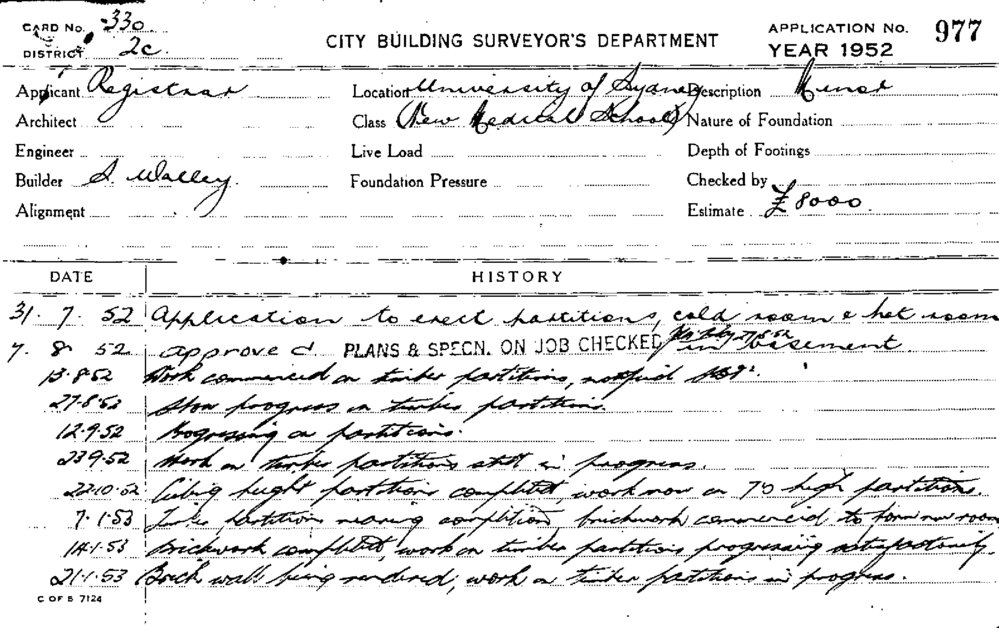 CARD No. 330
DISTRICT 2c.
CITY BUILDING SURVEYOR'S DEPARTMENT
APPLICATION No. 977
YEAR 1952
Applicant Registrar
Location University of Sydney
Description Minor
Architect
Class (New Medical School)
Nature of Foundation
Engineer
Live Load
Depth of Footings
Builder S. Walley.
Foundation Pressure
Checked by
Alignment
Estimate £8000.
DATE HISTORY
31. 7. 52 Application to erect partitions, cold room & hot room
in basement
7. 8 52 approved. PLANS & SPECN. ON JOB CHECKED
13.8.52 Work commenced on timber partitions, notified
27.8.52 Slow progress on timber partitions.
12.9.52 Progressing on partitions.
23.9.52 Work on timber partitions still in progress.
22.10.52 Ceiling height partitions completed, work now on 7'0 high partitions.
7.1.53 Timber partitions nearing completion, brickwork commenced to form new room
14.1.53 Brickwork completed, work on timber partitions progressing satisfactorily.
21.1.53 Brick wall being rendered, work on timber partitions in progress.
C OF S 7124